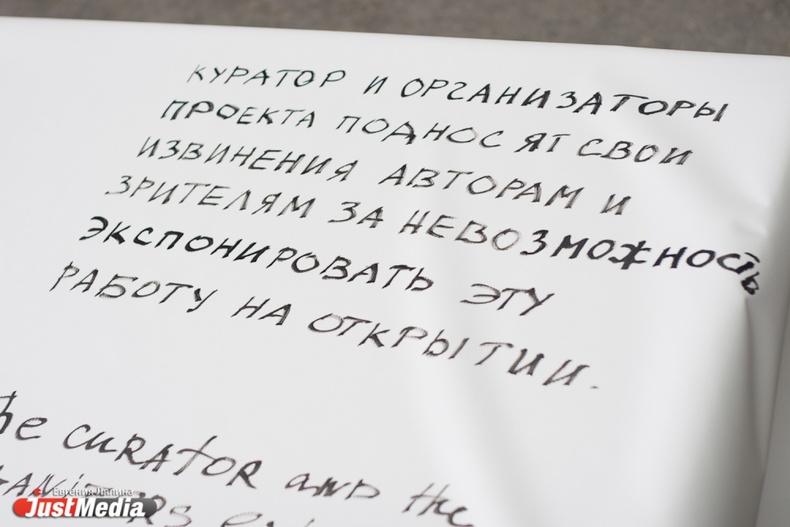 КУРАТОР И ОРГАНИЗАТОРЫ
ПРОЕКТА ПОДНОСЯТ СВОИ
ИЗВИНЕНИЯ АВТОРАМ И
ЗРИТЕЛЯМ ЗА НЕВОЗМОЖНОСТЬ
ЭКСПОНИРОВАТЬ ЭТУ
РАБОТУ НА ОТКРЫТИИ.
the curator and the
Евгения
JustMedia